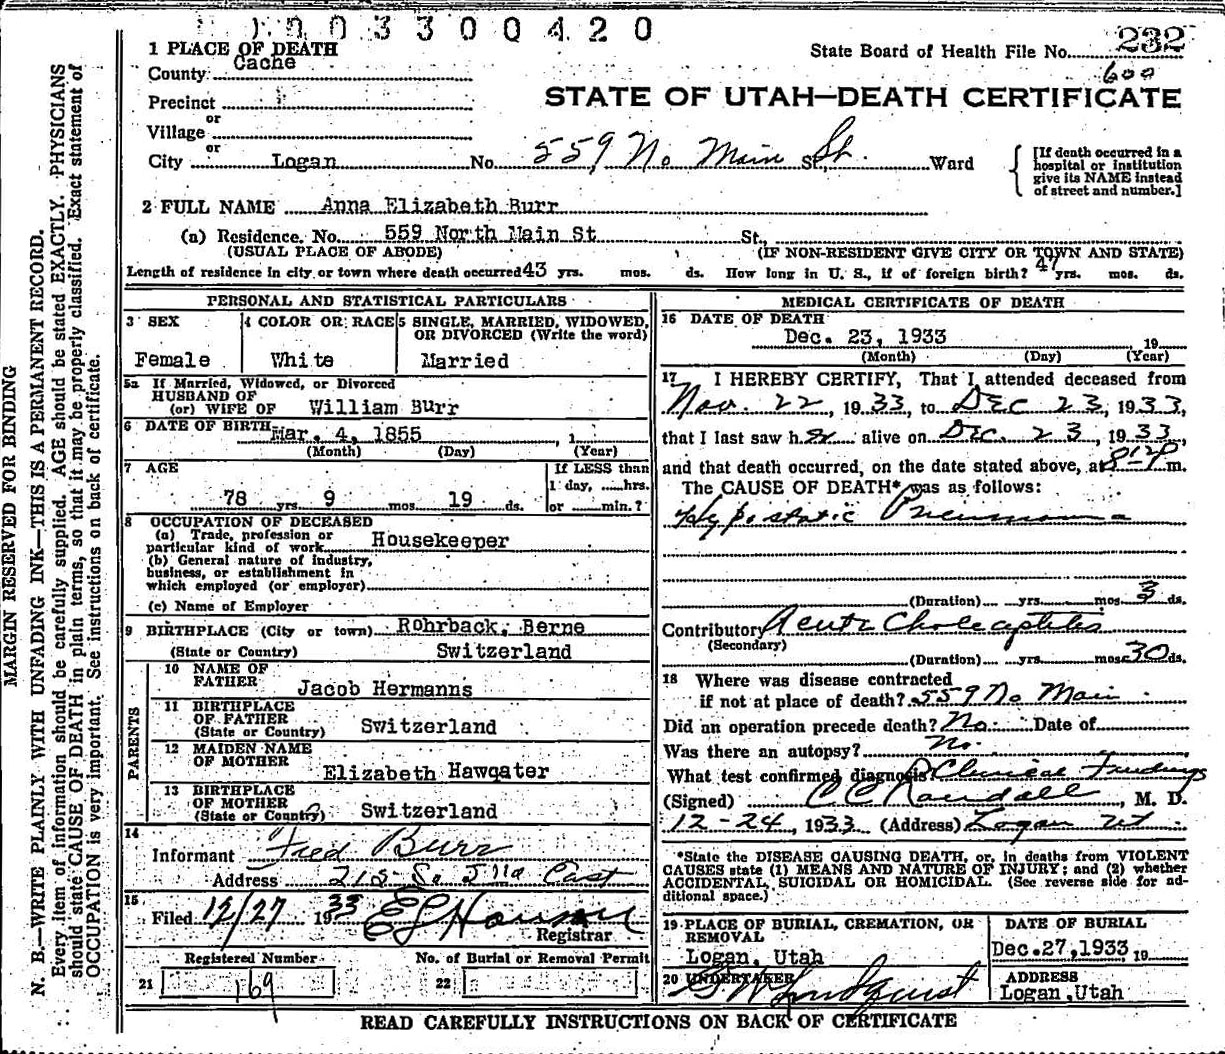 0 0 3 3 0 0 4 2 0
1 PLACE OF DEATH
State Board of Health File No. 232
County Cache
600
Precinct
STATE OF UTAH—DEATH CERTIFICATE
or
Village
or
City Logan No. 559 No Main St., St. Ward
[If death occurred in a
hospital or institution
give its NAME instead
of street and number.]
2 FULL NAME Anna Elizabeth Burr
(a) Residence. No. 559 North Main St St.,
(USUAL PLACE OF ABODE) (IF NON-RESIDENT GIVE CITY OR TOWN AND STATE)
Length of residence in city or town where death occurred 43 yrs. mos. ds. How long in U. S., if of foreign birth? 47 yrs. mos. ds.
PERSONAL AND STATISTICAL PARTICULARS
3 SEX
Female
4 COLOR OR RACE
White
5 SINGLE, MARRIED, WIDOWED,
OR DIVORCED (Write the word)
Married
5a If Married, Widowed, or Divorced
HUSBAND OF
(or) WIFE OF William Burr
6 DATE OF BIRTH Mar. 4, 1855 , 1
(Month) (Day) (Year)
7 AGE
78 yrs. 9 mos. 19 ds.
If LESS than
1 day, hrs.
or min.?
8 OCCUPATION OF DECEASED
(a) Trade, profession or
particular kind of work Housekeeper
(b) General nature of industry,
business, or establishment in
which employed (or employer)
(c) Name of Employer
9 BIRTHPLACE (City or town) Rohrback, Berne
(State or Country) Switzerland
PARENTS
10 NAME OF
FATHER Jacob Hermanns
11 BIRTHPLACE
OF FATHER
(State or Country) Switzerland
12 MAIDEN NAME
OF MOTHER Elizabeth Hawgater
13 BIRTHPLACE
OF MOTHER
(State or Country) Switzerland
14
Informant Fred Burr
Address 215 So East
15
Filed 12/27 1933
Registrar
Registered Number No. of Burial or Removal Permit
21 169 22
MEDICAL CERTIFICATE OF DEATH
16 DATE OF DEATH
Dec. 23, 1933 19
(Month) (Day) (Year)
17 I HEREBY CERTIFY, That I attended deceased from
Nov. 22, 1933, to Dec 23, 1933,
that I last saw her alive on Dec. 23, 1933,
and that death occurred, on the date stated above, at m.
The CAUSE OF DEATH* was as follows:
Hypostatic Pneumonia
(Duration) yrs. mos. 3 ds.
Contributory Acute
(Secondary)
(Duration) yrs. mos. 30 ds.
18 Where was disease contracted
if not at place of death? 559 No Main
Did an operation precede death? No. Date of
Was there an autopsy? No.
What test confirmed diagnosis Clinical Findings
(Signed) C C Randall, M. D.
12-24, 1933 (Address) Logan Ut
*State the DISEASE CAUSING DEATH, or, in deaths from VIOLENT
CAUSES state (1) MEANS AND NATURE OF INJURY; and (2) whether
ACCIDENTAL, SUICIDAL OR HOMICIDAL. (See reverse side for ad-
ditional space.)
19 PLACE OF BURIAL, CREMATION, OR
REMOVAL
Logan, Utah
DATE OF BURIAL
Dec.27,1933 19
20 UNDERTAKER
Lundquist
ADDRESS
Logan,Utah
READ CAREFULLY INSTRUCTIONS ON BACK OF CERTIFICATE
MARGIN RESERVED FOR BINDING
N. B.—WRITE PLAINLY WITH UNFADING INK—THIS IS A PERMANENT RECORD.
Every item of information should be carefully supplied. AGE should be stated EXACTLY. PHYSICIANS
should state CAUSE OF DEATH in plain terms, so that it may be properly classified. Exact statement of
OCCUPATION is very important. See instructions on back of certificate.